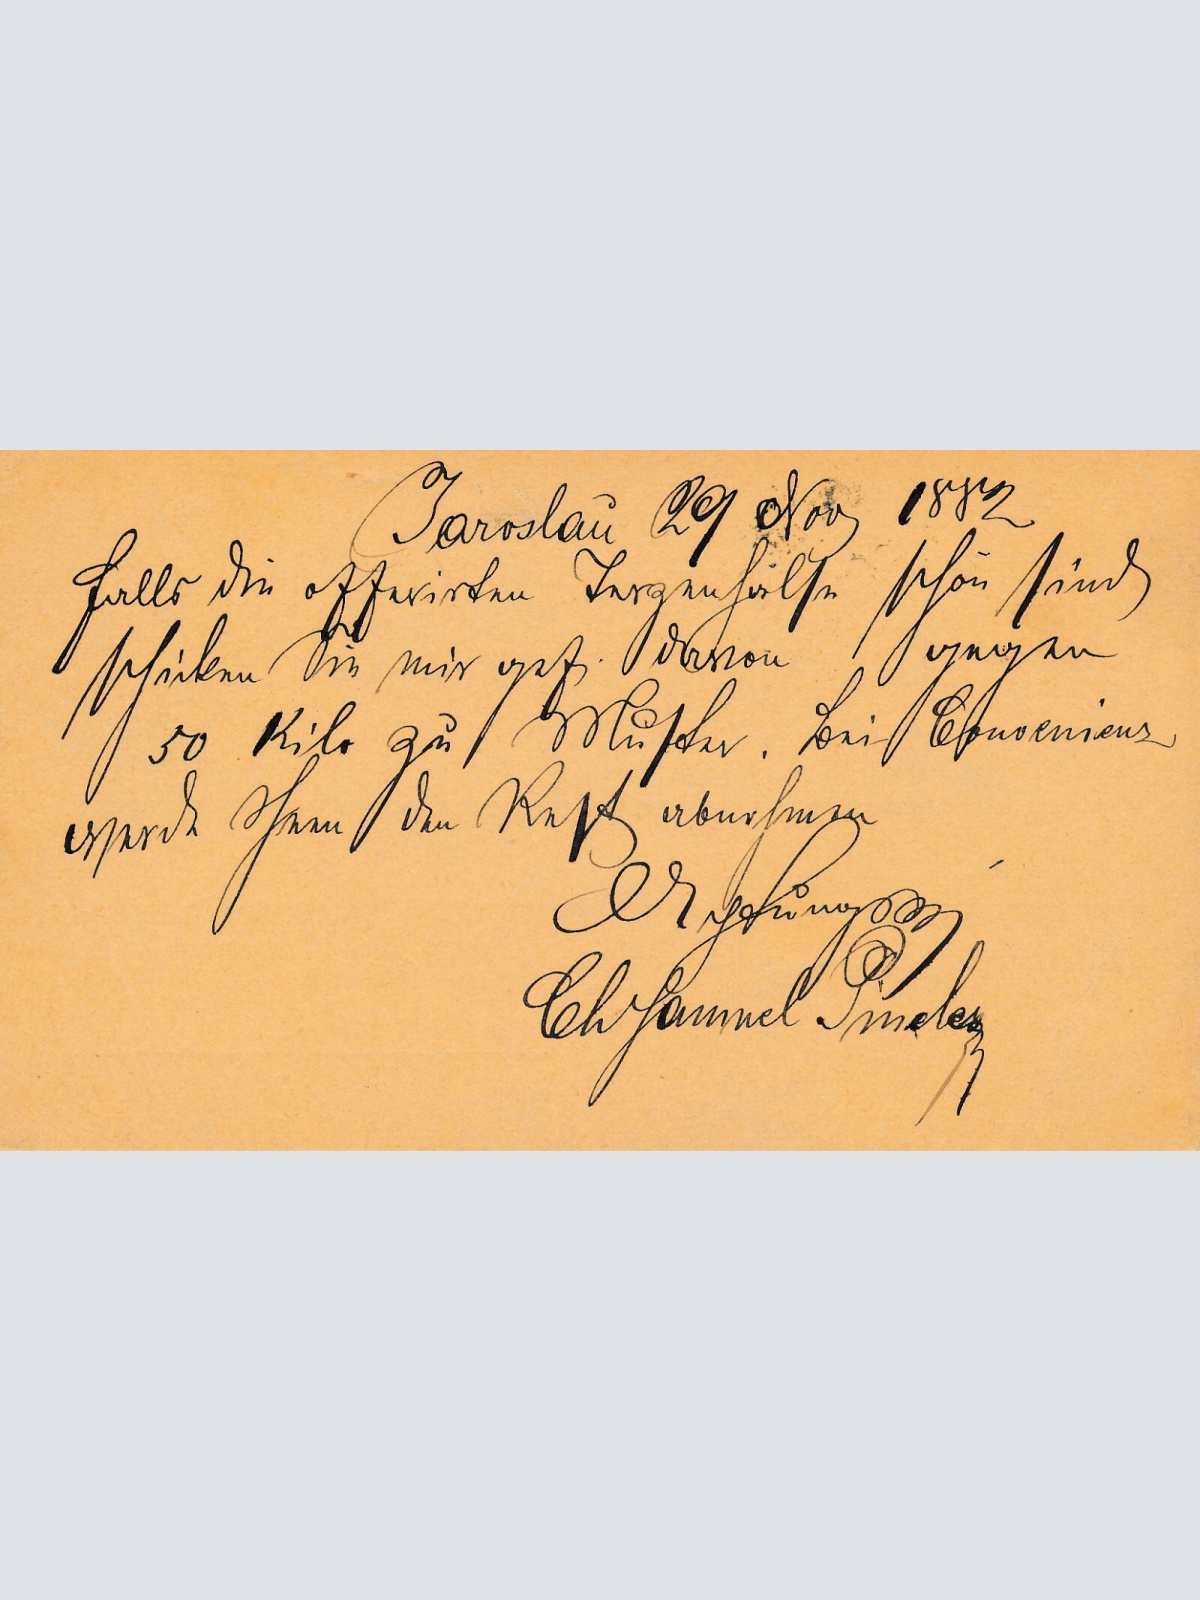 Jaroslau 29 Nov 1882
Falls die offerirten schön sind
schicken Sie mir gef. davon gegen
50 Kilo zu Muster. Bei Convenienz
werde Ihnen den Rest abnehmen
Achtungs
Ch Samuel